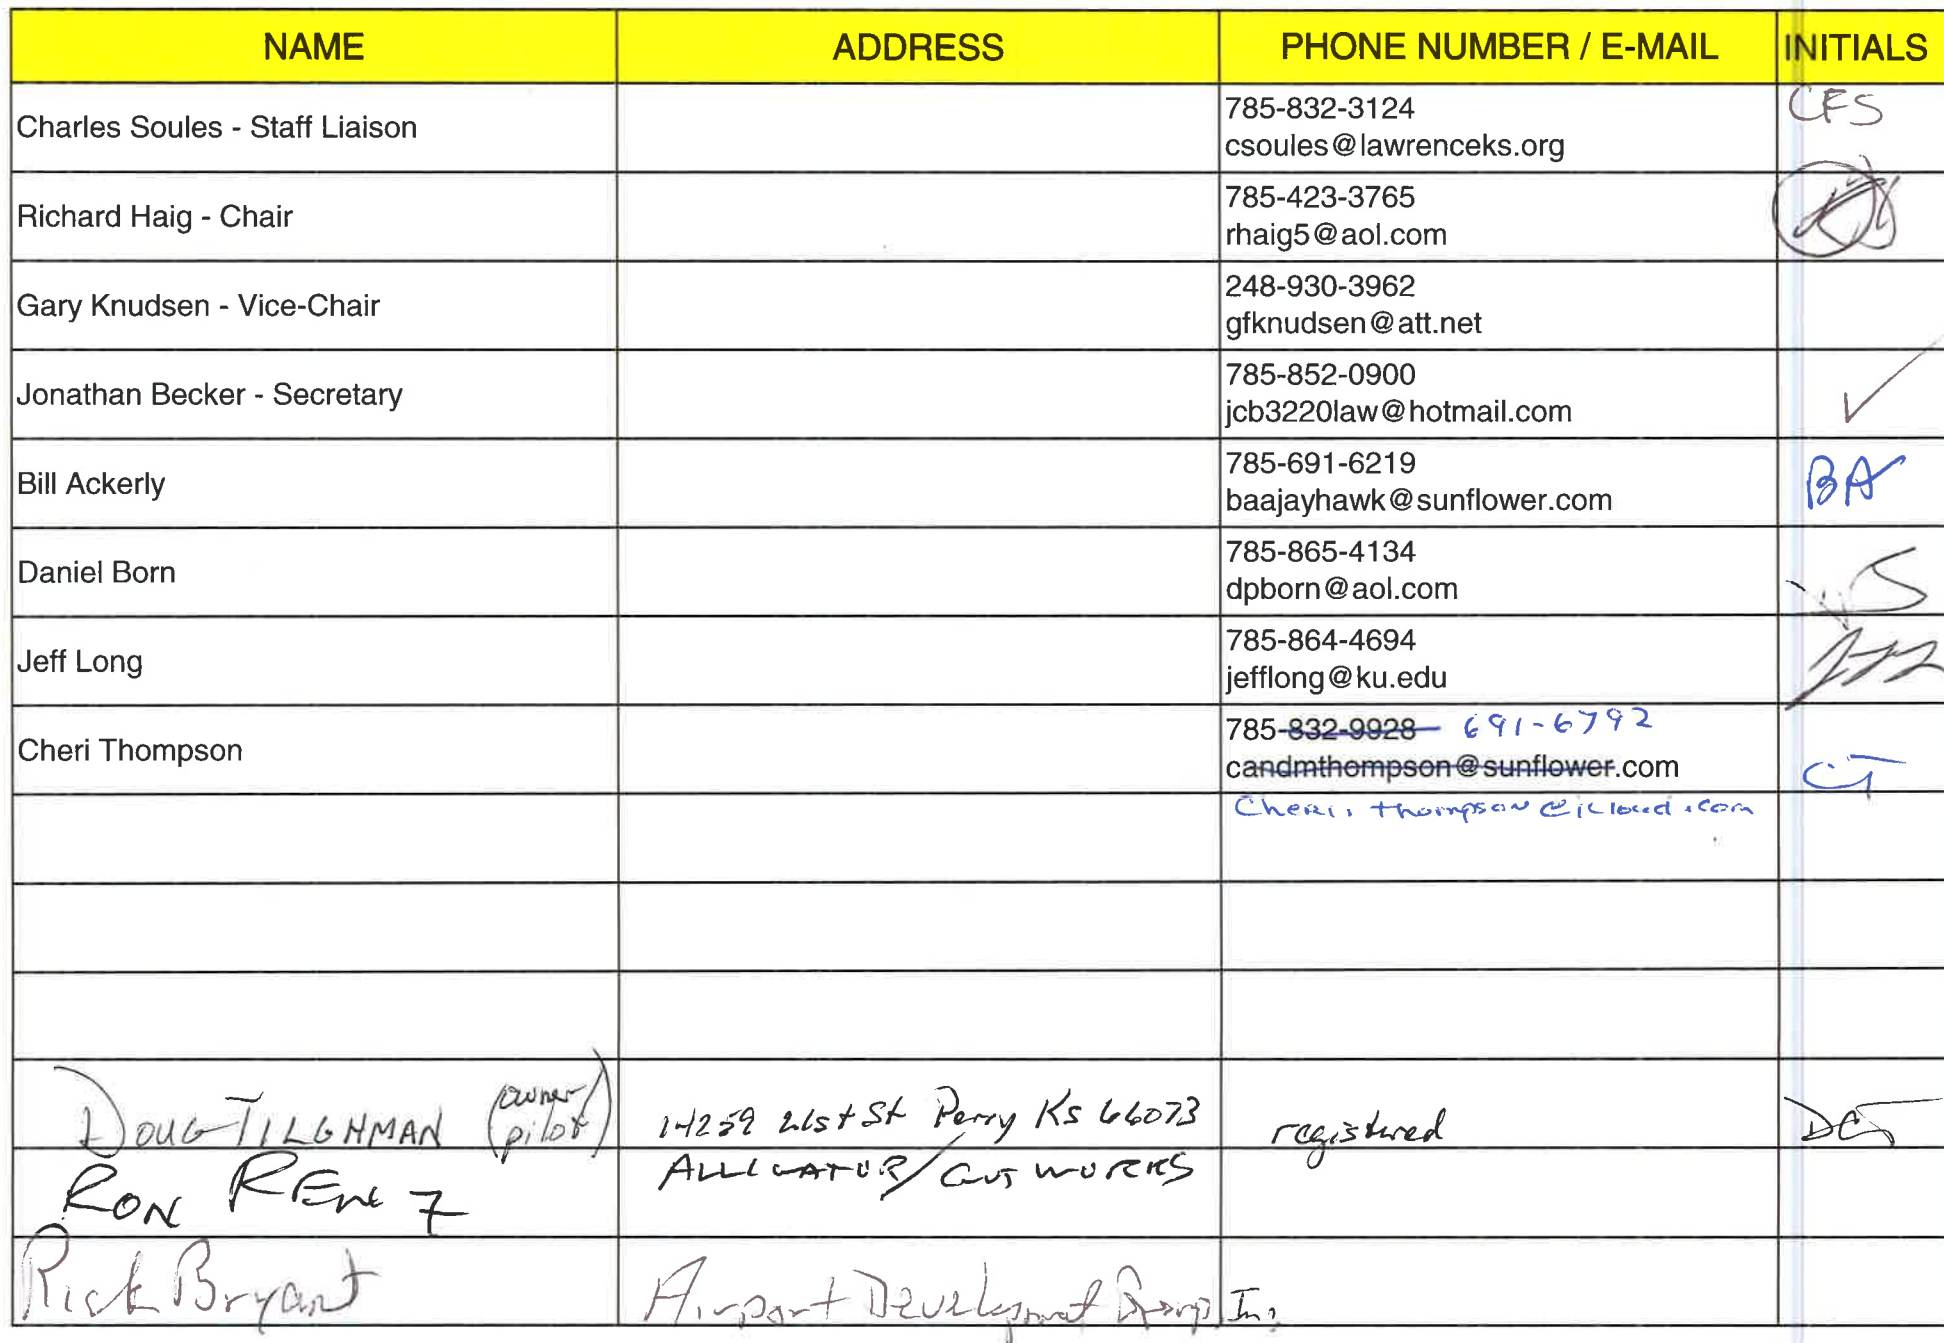 NAME ADDRESS PHONE NUMBER / E-MAIL INITIALS
Charles Soules - Staff Liaison 785-832-3124 CFS
csoules@lawrenceks.org
Richard Haig - Chair 785-423-3765
rhaig5@aol.com
Gary Knudsen - Vice-Chair 248-930-3962
gfknudsen@att.net
Jonathan Becker - Secretary 785-852-0900 ✓
jcb3220law@hotmail.com
Bill Ackerly 785-691-6219 BA
baajayhawk@sunflower.com
Daniel Born 785-865-4134
dpborn@aol.com
Jeff Long 785-864-4694
jefflong@ku.edu
Cheri Thompson 785-832-9928 691-6792
candmthompson@sunflower.com CT
Cheri.thompson@icloud.com
DOUG TILGHMAN (owner/pilot) 14259 21st St Perry Ks 66073 registered DCT
RON RENZ ALLIGATOR/
Rick Bryant Airport Development Group, Inc